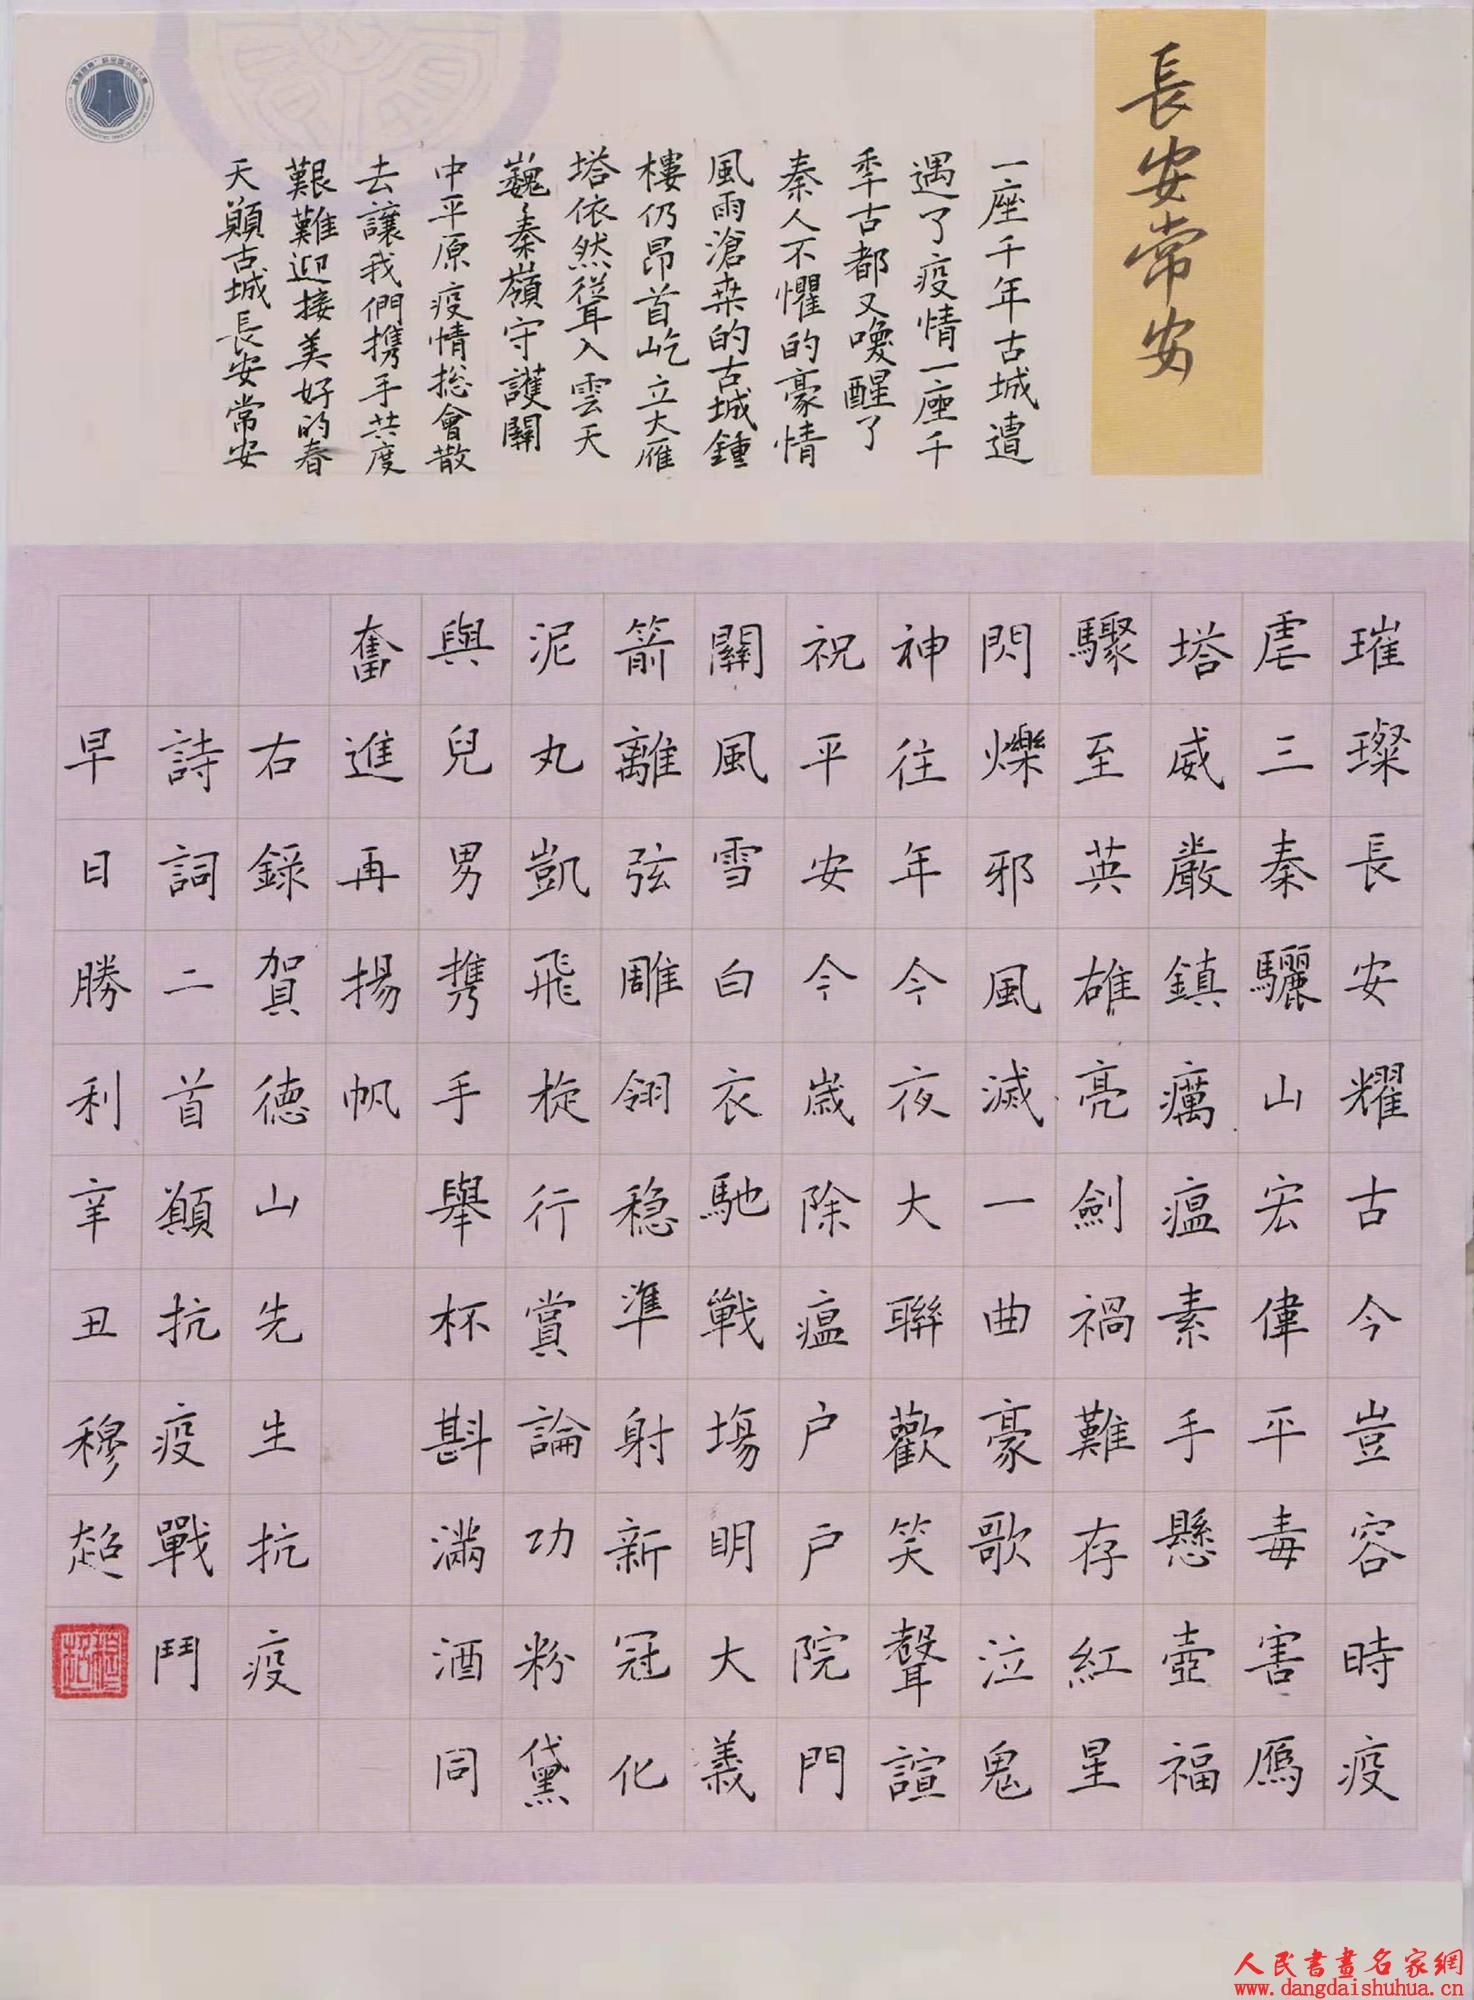 長安常安
一座千年古城遭
遇了疫情一座千
秊古都又喚醒了
秦人不懼的豪情
風雨滄桒的古城鍾
樓仍昂首屹立大雁
塔依然從耳入雲天
巍秦嶺守護關
中平原疫情捴會散
去讓我們携手共度
艱難迎接美好的春
天顚古城長安常安
璀璨長安耀古今豈容時疫
虐三秦驪山宏偉平毒害鴈
塔威嚴鎮癘瘟素手懸壺福
驟至英雄亮劍禍難存紅星
閃爍邪風滅一曲豪歌泣鬼
神往年今夜大聯歡笑聲諠
祝平安今歲除瘟户户院門
關風雪白衣馳戰場明大義
箭離弦雕翎稳準射新冠化
泥丸凱飛旋行賞論功粉黛
與兒男携手舉杯斟滿酒同
奮進再揚帆
右錄賀德山先生抗疫
詩詞二首顚抗疫戰鬥
早日勝利辛丑穆超
人民書畫名家網
www.dangdaishuhua.cn